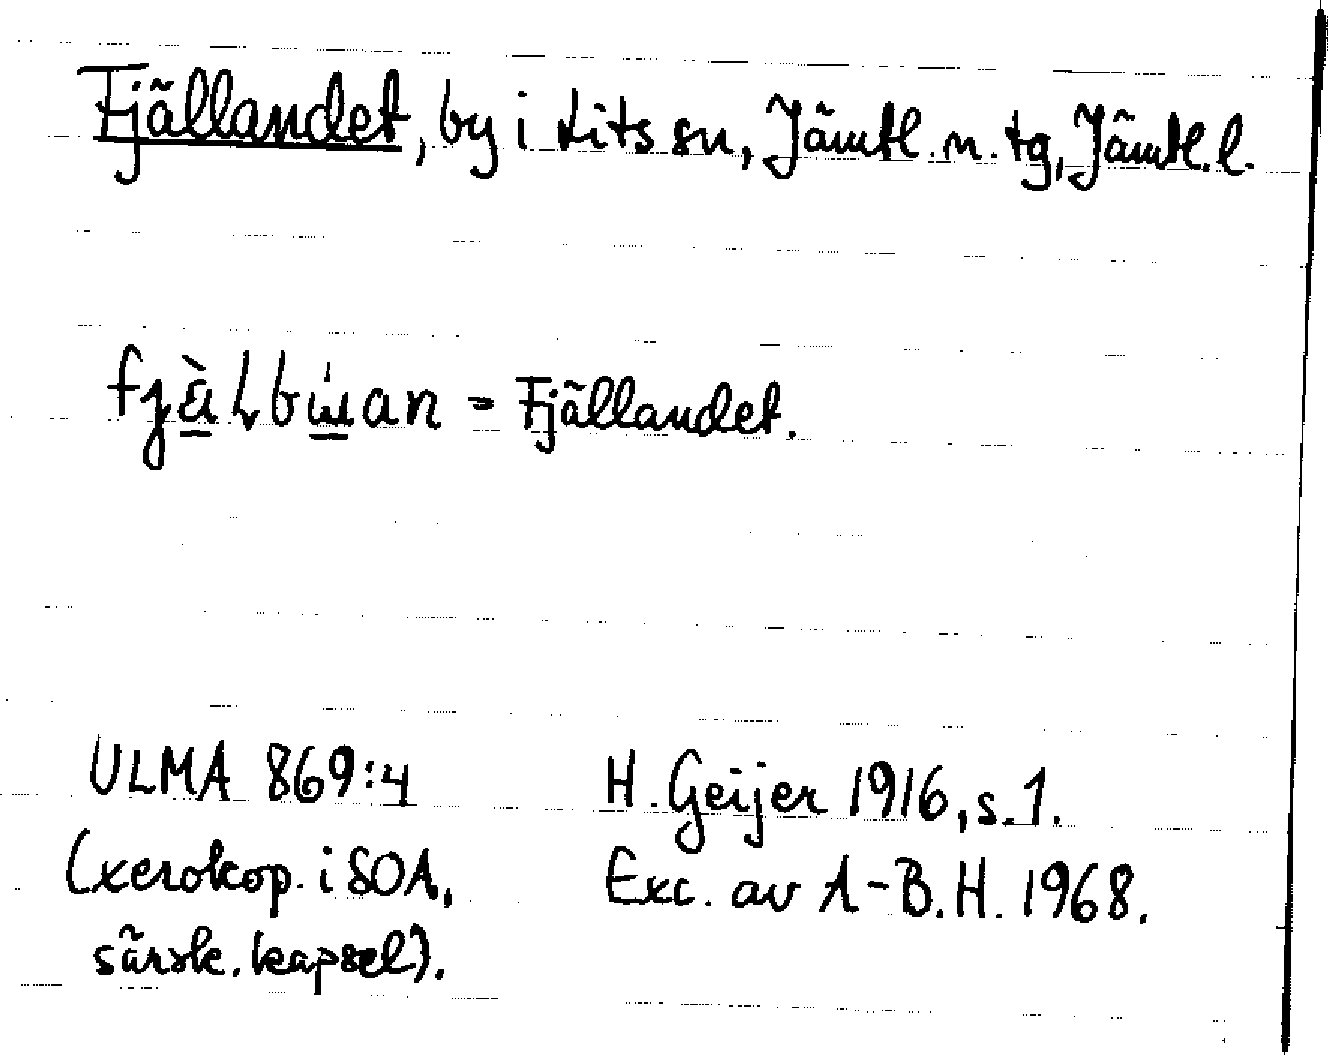 Fjällandet, by i Lits sn, Jämtl. n. tg, Jämtl. l.
= Fjällandet.
ULMA 869:4 H. Geijer 1916, s. 1.
(xerokop. i SOA, Exc. av A-B. H. 1968.
särsk. kapsel).